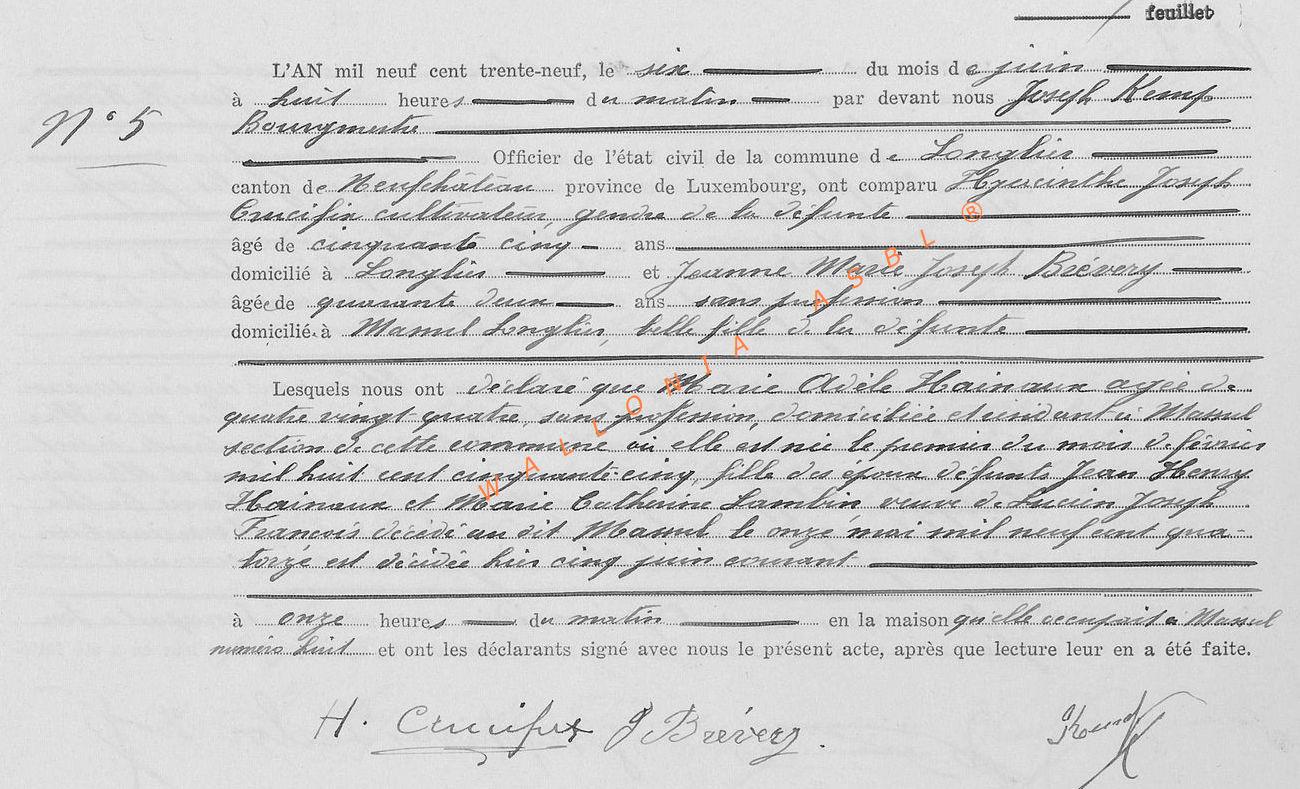 feuillet
L'AN mil neuf cent trente-neuf, le six du mois de juin
à huit heures du matin par devant nous Joseph Kemp
N° 5
Bourgmestre
Officier de l'état civil de la commune de Longlier
canton de Neufchâteau province de Luxembourg, ont comparu Hyacinthe Joseph
Crucifix cultivateur, gendre de la défunte
âgé de cinquante cinq ans
domicilié à Longlier et Jeanne Marie Joseph Brévery
âgée de quarante deux ans sans profession
domiciliée à Massul Longlier, belle fille de la défunte
Lesquels nous ont déclaré que Marie Adèle Hainaux agée de
quatre vingt quatre, sans profession, domiciliée et résidant à Massul
section de cette commune où elle est née le premier du mois de février
mil huit cent cinquante cinq, fille des époux défunts Jean Henry
Hainaux et Marie Catherine Lambin, veuve de Lucien Joseph
François décédé au dit Massul le onze mai mil neuf cent qua-
torze est décédée hier cinq juin courant
à onze heures du matin en la maison qu'elle occupait à Massul
numéro huit et ont les déclarants signé avec nous le présent acte, après que lecture leur en a été faite.
H. Crucifix J Brévery. Kemp
WALLONIA ASBL ®